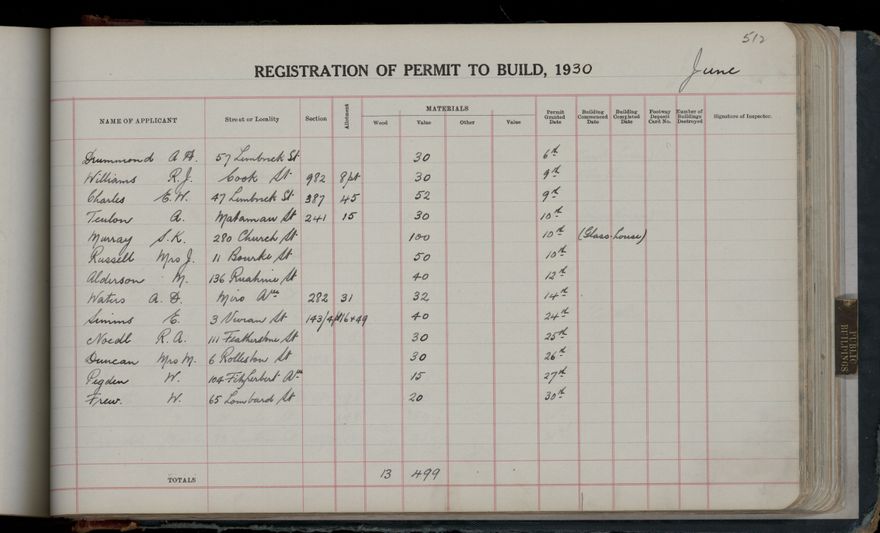 512
REGISTRATION OF PERMIT TO BUILD, 1930 June
NAME OF APPLICANT Street or Locality Section Allotment MATERIALS Wood Value Other Value Permit Granted Date Building Commenced Date Building Completed Date Footway Deposit Card No. Number of Buildings Destroyed Signature of Inspector.
Drummond A. 57 Limbrick St 30 6th
Williams R.J. Cook St 982 8pt 30 9th
Charles E.W. 47 Limbrick St 387 45 52 9th
Teulon A. Matamau St 241 15 30 10th
Murray S.K. 280 Church St 100 10th (Glass-house)
Russell Mrs J. 11 Bourke St 50 10th
Alderson M. 136 Ruahine St 40 12th
Waters A. D. Miro Ave 282 31 32 14th
Simms E. 3 Vivian St 40 24th
R. A. 111 Featherston St 30 25th
Duncan Mrs M. 6 Rolleston St 30 26th
Pegden W. 104 Fitzherbert Ave 15 27th
Frew. W. 65 Lombard St 20 30th
TOTALS 13 499
PUBLIC BUILDINGS